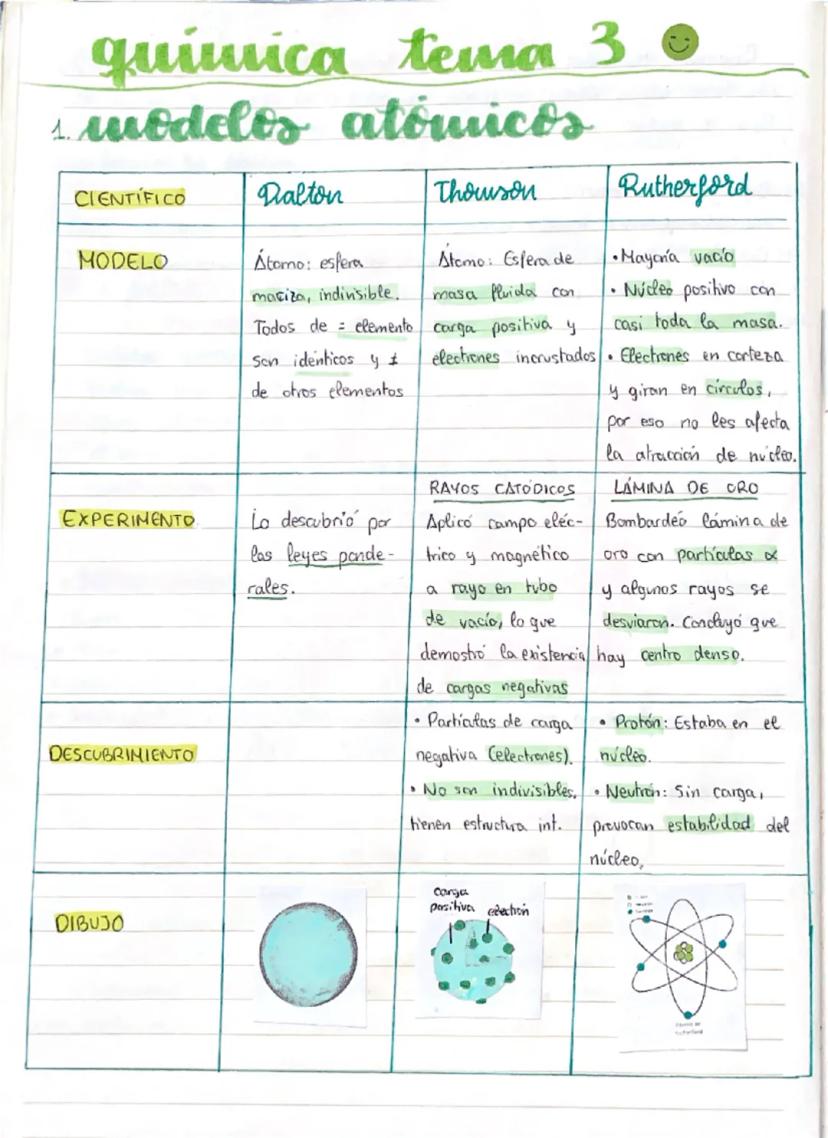 química tema 3
1. modelos atómicos
CIENTÍFICO
Dalton
Thomson
Rutherford
MODELO
Átomo: esfera
maciza, indivisible.
Todos de = elemento
son idénticos y ≠
de otros elementos
Átomo: Esfera de
masa fluida con
carga positiva y
electrones incrustados
• Mayoría vacío
• Núcleo positivo con
casi toda la masa.
• Electrones en corteza
y giran en círculos,
por eso no les afecta
la atracción de núcleo.
EXPERIMENTO
Lo descubrió por
las leyes ponde-
rales.
RAYOS CATÓDICOS
Aplicó campo eléc-
trico y magnético
a rayo en tubo
de vacío, lo que
demostró la existencia
de cargas negativas
LÁMINA DE ORO
Bombardeó lámina de
oro con partículas α
y algunos rayos se
desviaron. Concluyó que
hay centro denso.
DESCUBRIMIENTO
• Partículas de carga
negativa (electrones).
• No son indivisibles,
tienen estructura int.
• Protón: Estaba en el
núcleo.
• Neutrón: Sin carga,
provocan estabilidad del
núcleo.
DIBUJO
carga
positiva
electrón